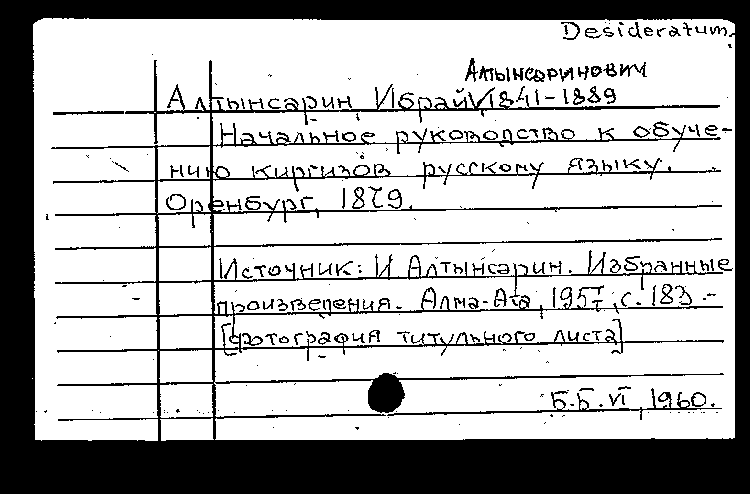 Desideratum.
Алтынсаринович
Алтынсарин, Ибрай, 1841-1889
Начальное руководство к обуче-
нию киргизов русскому языку.
Оренбург, 1879.
Источник: И Алтынсарин. Избранные
произведения. Алма-Ата, 1957, с. 183 -
[фотография титульного листа]
Б.Б. VI, 1960.